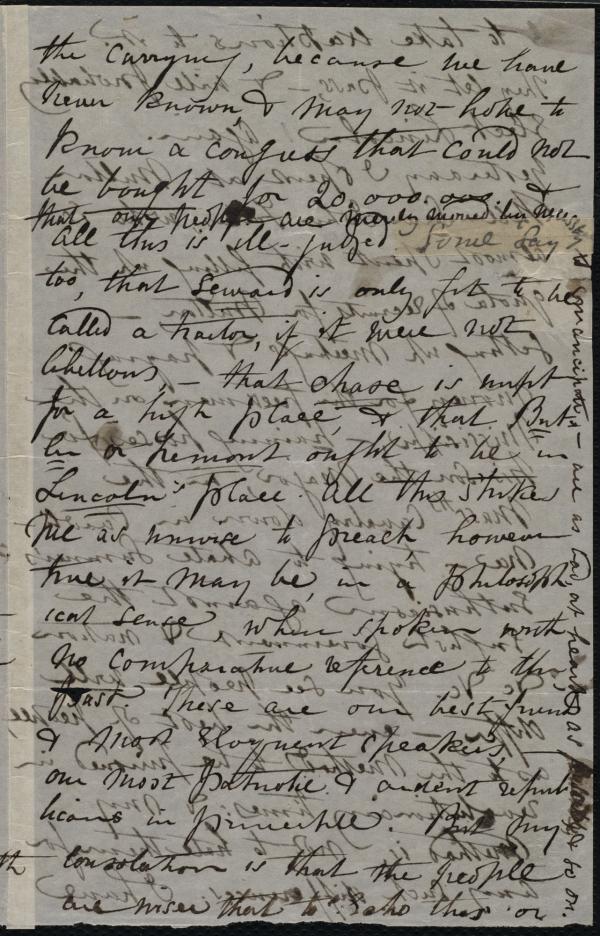 the carrying, because we have
never known, & may not hope to
know a congress that could not
be bought for 20,000.000. &
that only people are merely moved by neces
All this is ill-judged Some day
too, that Seward is only fit to be
called a traitor, if it were not
libellous, – that Chase is unfit
for a high place, & that But-
ler or Fremont ought to be in
Lincoln's place. All this strikes
me as unwise to preach, however
true it may be, in a philosoph
ical sense when spoken with
no comparative reference to the
past. These are our best friends
& most eloquent speakers,
our most patriotic & ardent repub
licans in principle. But my
consolation is that the people
are wiser that to echo this or
sity to emancipate – are as bad, at heart, as to on.